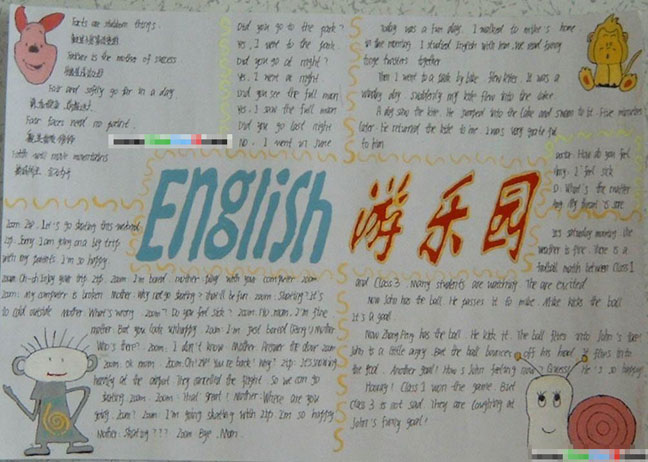 Facts are stubborn things.
is the mother of success
Fair and softly go far in a day.
Fair faces need no paint.
Faith will move mountains
Did you go to the park?
Yes, I went to the park.
Did you go at night?
Yes, I went at night
Did you see the full moon
Yes, I saw the full moon
Did you go last night
No, I went in June
Today was a fun day. I walked to Mike's home
in the morning. I studied English with him. We read funny
together
Then I went to a park by bike. Flew kites. It was a
windy day. Suddenly my kite flew into the lake.
A dog saw the kite. He jumped into the lake and swam to it. Five minutes
later. He returned the kite to me. I was very grateful
to him
English 游乐园
How do you feel
I feel sick
D: What's the matter
My head is sore
Zoom: Zip. Let's go skating this weekend
Zip: Sorry I am going on big trip
with my parents. I'm so happy.
Zoom: Oh-oh Enjoy your trip Zip. Zoom: I'm bored. Mother: Play with your computer. Zoom:
Zoom: My computer is broken. Mother: Why not go skating? You'll be fun. Zoom: Skating? It's
too cold outside. Mother: What's wrong. Zoom? Do you feel sick? Zoom: No. Mom. I'm fine
Mother: But you look unhappy. Zoom: I'm just bored (Ding) Mother:
Who's there? Zoom: I don't know. Mother: Answer the door Zoom
Zoom: Ok mom. Zoom: Oh! Zip! You're back! Why? Zip: It's snowing
heavily at the airport. They cancelled the flight. So we can go
skating Zoom. Zoom: That great! Mother: Where are you
going, Zoom? Zoom: I'm going skating with Zip. I'm so happy
Mother: Skating??? Zoom: Bye. Mum.
Yes Saturday morning. The
weather is fine. There is a
football match between Class 1
and Class 3. Many students are watching. They are excited
Now John has the ball. He passes it to Mike. Mike kicks the ball
It's a goal.
Now Zhang Peng has the ball. He kicks it. The ball flies into John's face!
John is a little angry. But the ball bounces off his head. It flies into
the goal. Another goal! How is John feeling now? Guess! He's so happy
Hooray! Class 1 won the game. But
Class 3 is not sad. They are laughing at
John's funny goal!